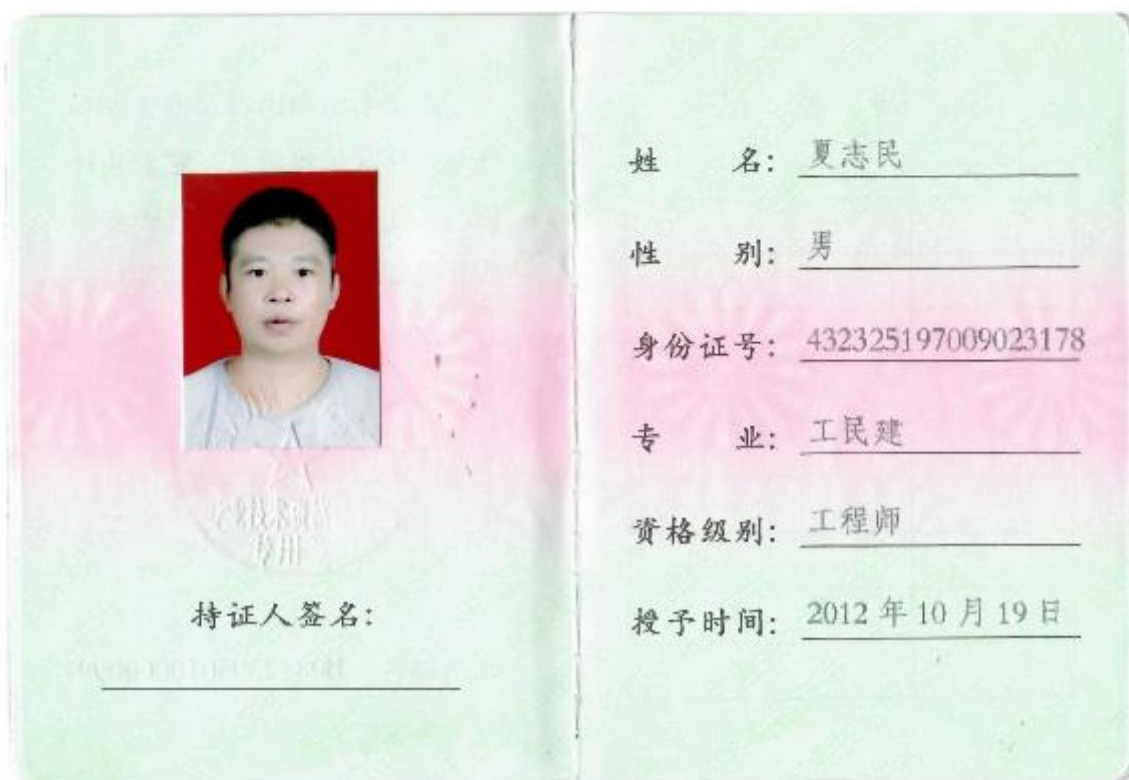 专业技术资格
专用章
持证人签名:
姓 名: 夏志民
性 别: 男
身份证号: 432325197009023178
专 业: 工民建
资格级别: 工程师
授予时间: 2012 年 10 月 19 日